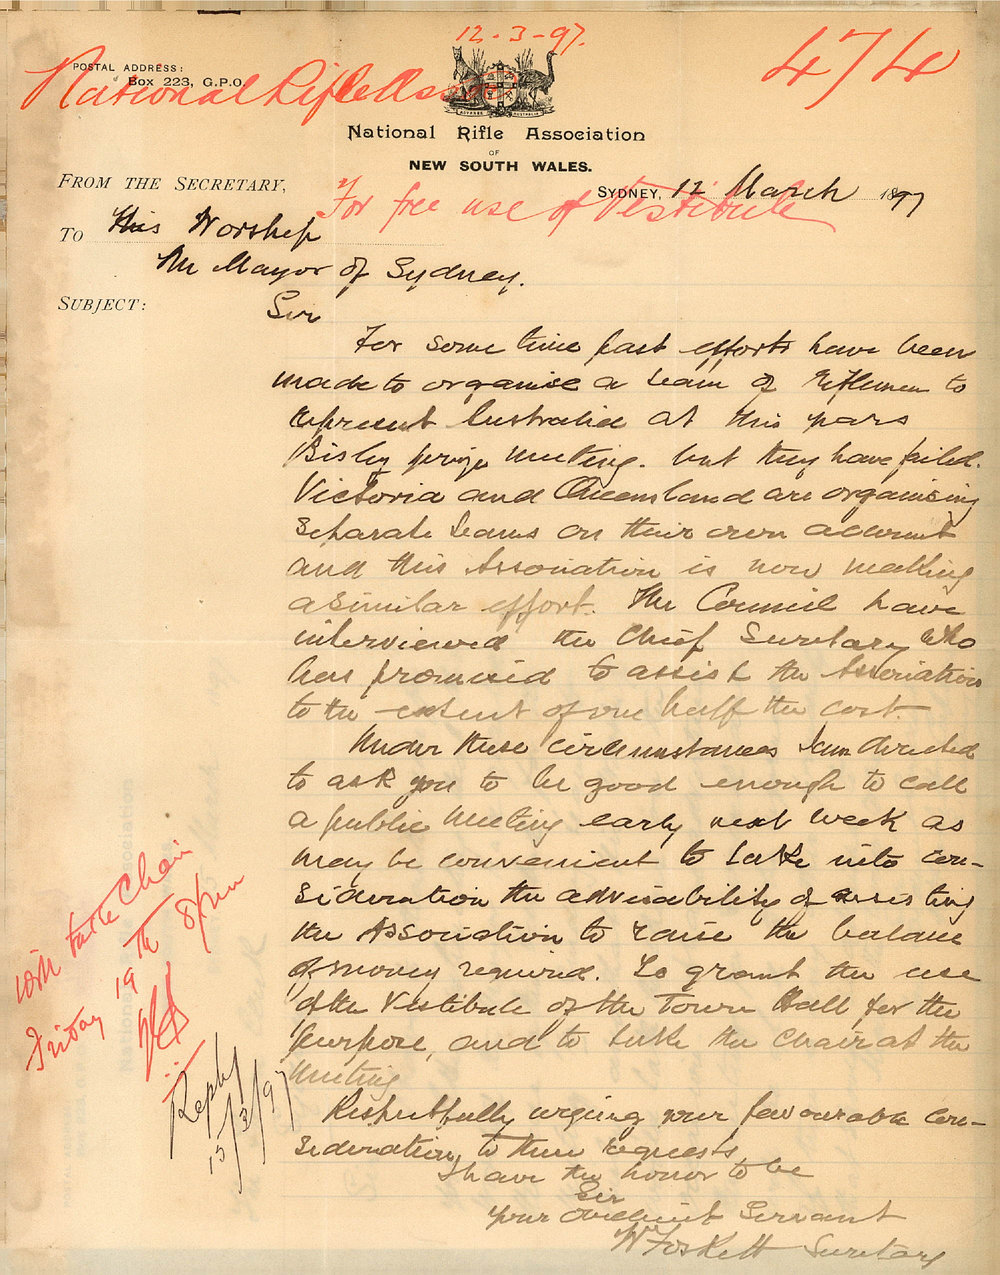 12-3-97.
474
POSTAL ADDRESS:
Box 223, G.P.O.
National Rifle Assocn
ADVANCE AUSTRALIA
National Rifle Association
OF
NEW SOUTH WALES.
FROM THE SECRETARY,
SYDNEY, 12 March 1897
For free use of Vestibule
TO His Worship
The Mayor of Sydney.
SUBJECT:
Sir
For some time past efforts have been
made to organise a team of riflemen to
represent Australia at this years
Bisley prize meeting. but they have failed.
Victoria and Queensland are organising
separate teams on their own account
and this Association is now making
a similar effort. The Council have
interviewed the Chief Secretary who
has promised to assist the Association
to the extent of one half the cost.
Under these circumstances I am directed
to ask you to be good enough to call
a public meeting early next week as
may be convenient to take into con-
sideration the advisability of assisting
the Association to raise the balance
of money required. To grant the use
of the Vestibule of the Town Hall for the
purpose, and to take the chair at the
meeting
Respectfully urging your favourable con-
sideration to these requests
I have the honor to be
Sir
your obedient Servant
W Foskett Secretary
Will take Chair
Friday 19th 8/pm
Reply
15/3/97